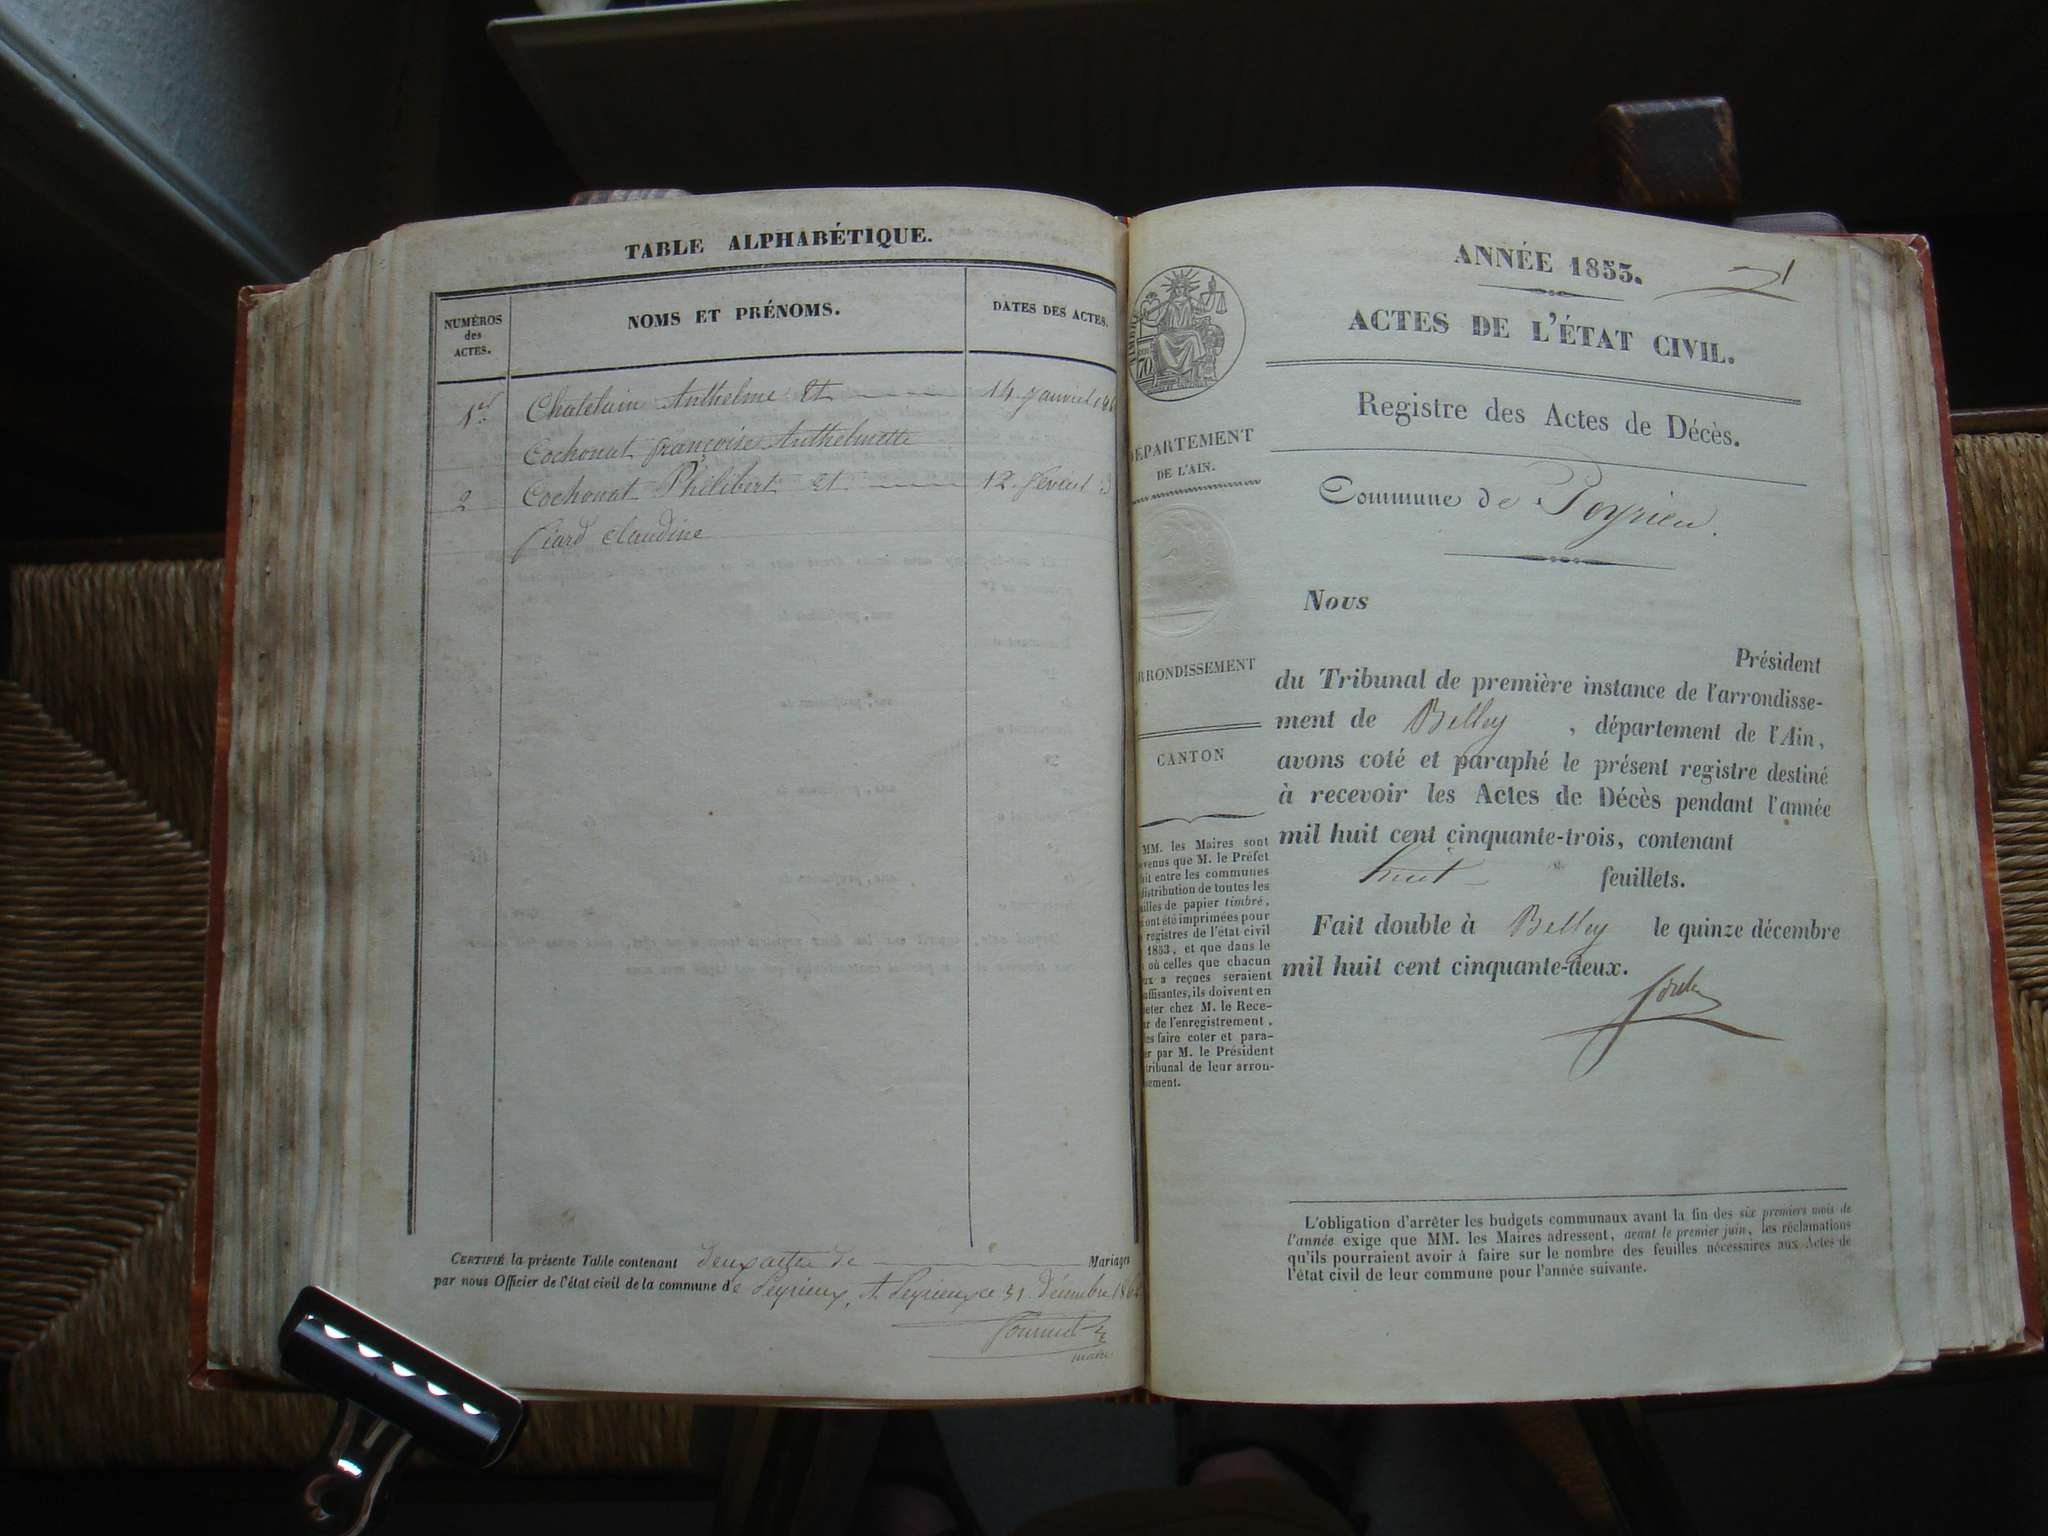 TABLE ALPHABÉTIQUE.
NUMÉROS
des
ACTES.
NOMS ET PRÉNOMS.
DATES DES ACTES.
1er. Chatelain Anthelme Et 14. Janvier
Cochonat françoise Anthelmette
2 Cochonat Philibert Et 12. février
Piard Claudine
CERTIFIÉ la présente Table contenant deux actes de Mariages
par nous Officier de l'état civil de la commune de Peyrieux, A Peyrieux ce 31. décembre
maire
ANNÉE 1853.
1
ACTES DE L'ÉTAT CIVIL.
Registre des Actes de Décès.
Commune de Peyrieu.
70
DÉPARTEMENT
DE L'AIN.
ARRONDISSEMENT
CANTON
MM. les Maires sont
venus que M. le Préfet
ait entre les communes
distribution de toutes les
illes de papier timbré,
i ont été imprimées pour
registres de l'état civil
1853, et que dans le
où celles que chacun
ux a reçues seraient
uffisantes, ils doivent en
eter chez M. le Rece-
r de l'enregistrement,
es faire coter et para-
er par M. le Président
tribunal de leur arron-
sement.
Nous
Président
du Tribunal de première instance de l'arrondisse-
ment de Belley, département de l'Ain,
avons coté et paraphé le présent registre destiné
à recevoir les Actes de Décès pendant l'année
mil huit cent cinquante-trois, contenant
huit feuillets.
Fait double à Belley le quinze décembre
mil huit cent cinquante-deux.
L'obligation d'arrêter les budgets communaux avant la fin des six premiers mois de
l'année exige que MM. les Maires adressent, avant le premier juin, les réclamations
qu'ils pourraient avoir à faire sur le nombre des feuilles nécessaires aux Actes de
l'état civil de leur commune pour l'année suivante.